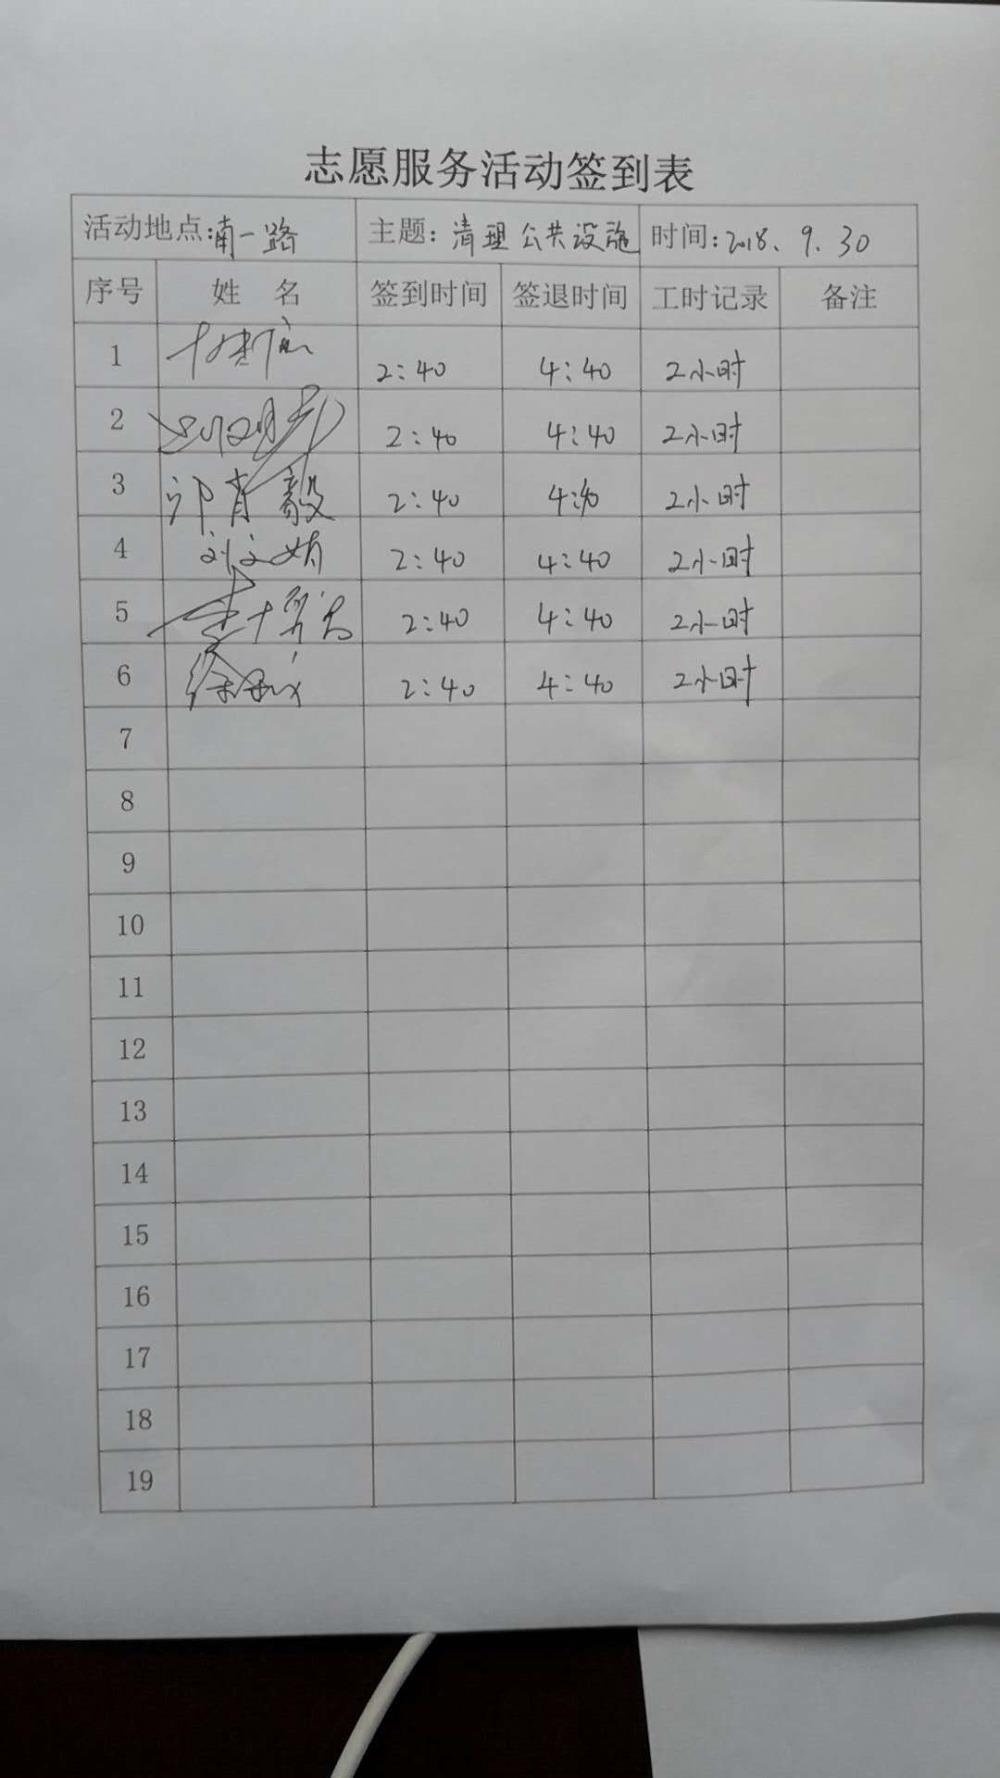 志愿服务活动签到表
活动地点:南一路 主题:清理公共设施 时间:2018.9.30
序号 姓 名 签到时间 签退时间 工时记录 备注
1 2:40 4:40 2小时
2 2:40 4:40 2小时
3 邝肖毅 2:40 4:40 2小时
4 刘文娟 2:40 4:40 2小时
5 2:40 4:40 2小时
6 2:40 4:40 2小时
7
8
9
10
11
12
13
14
15
16
17
18
19